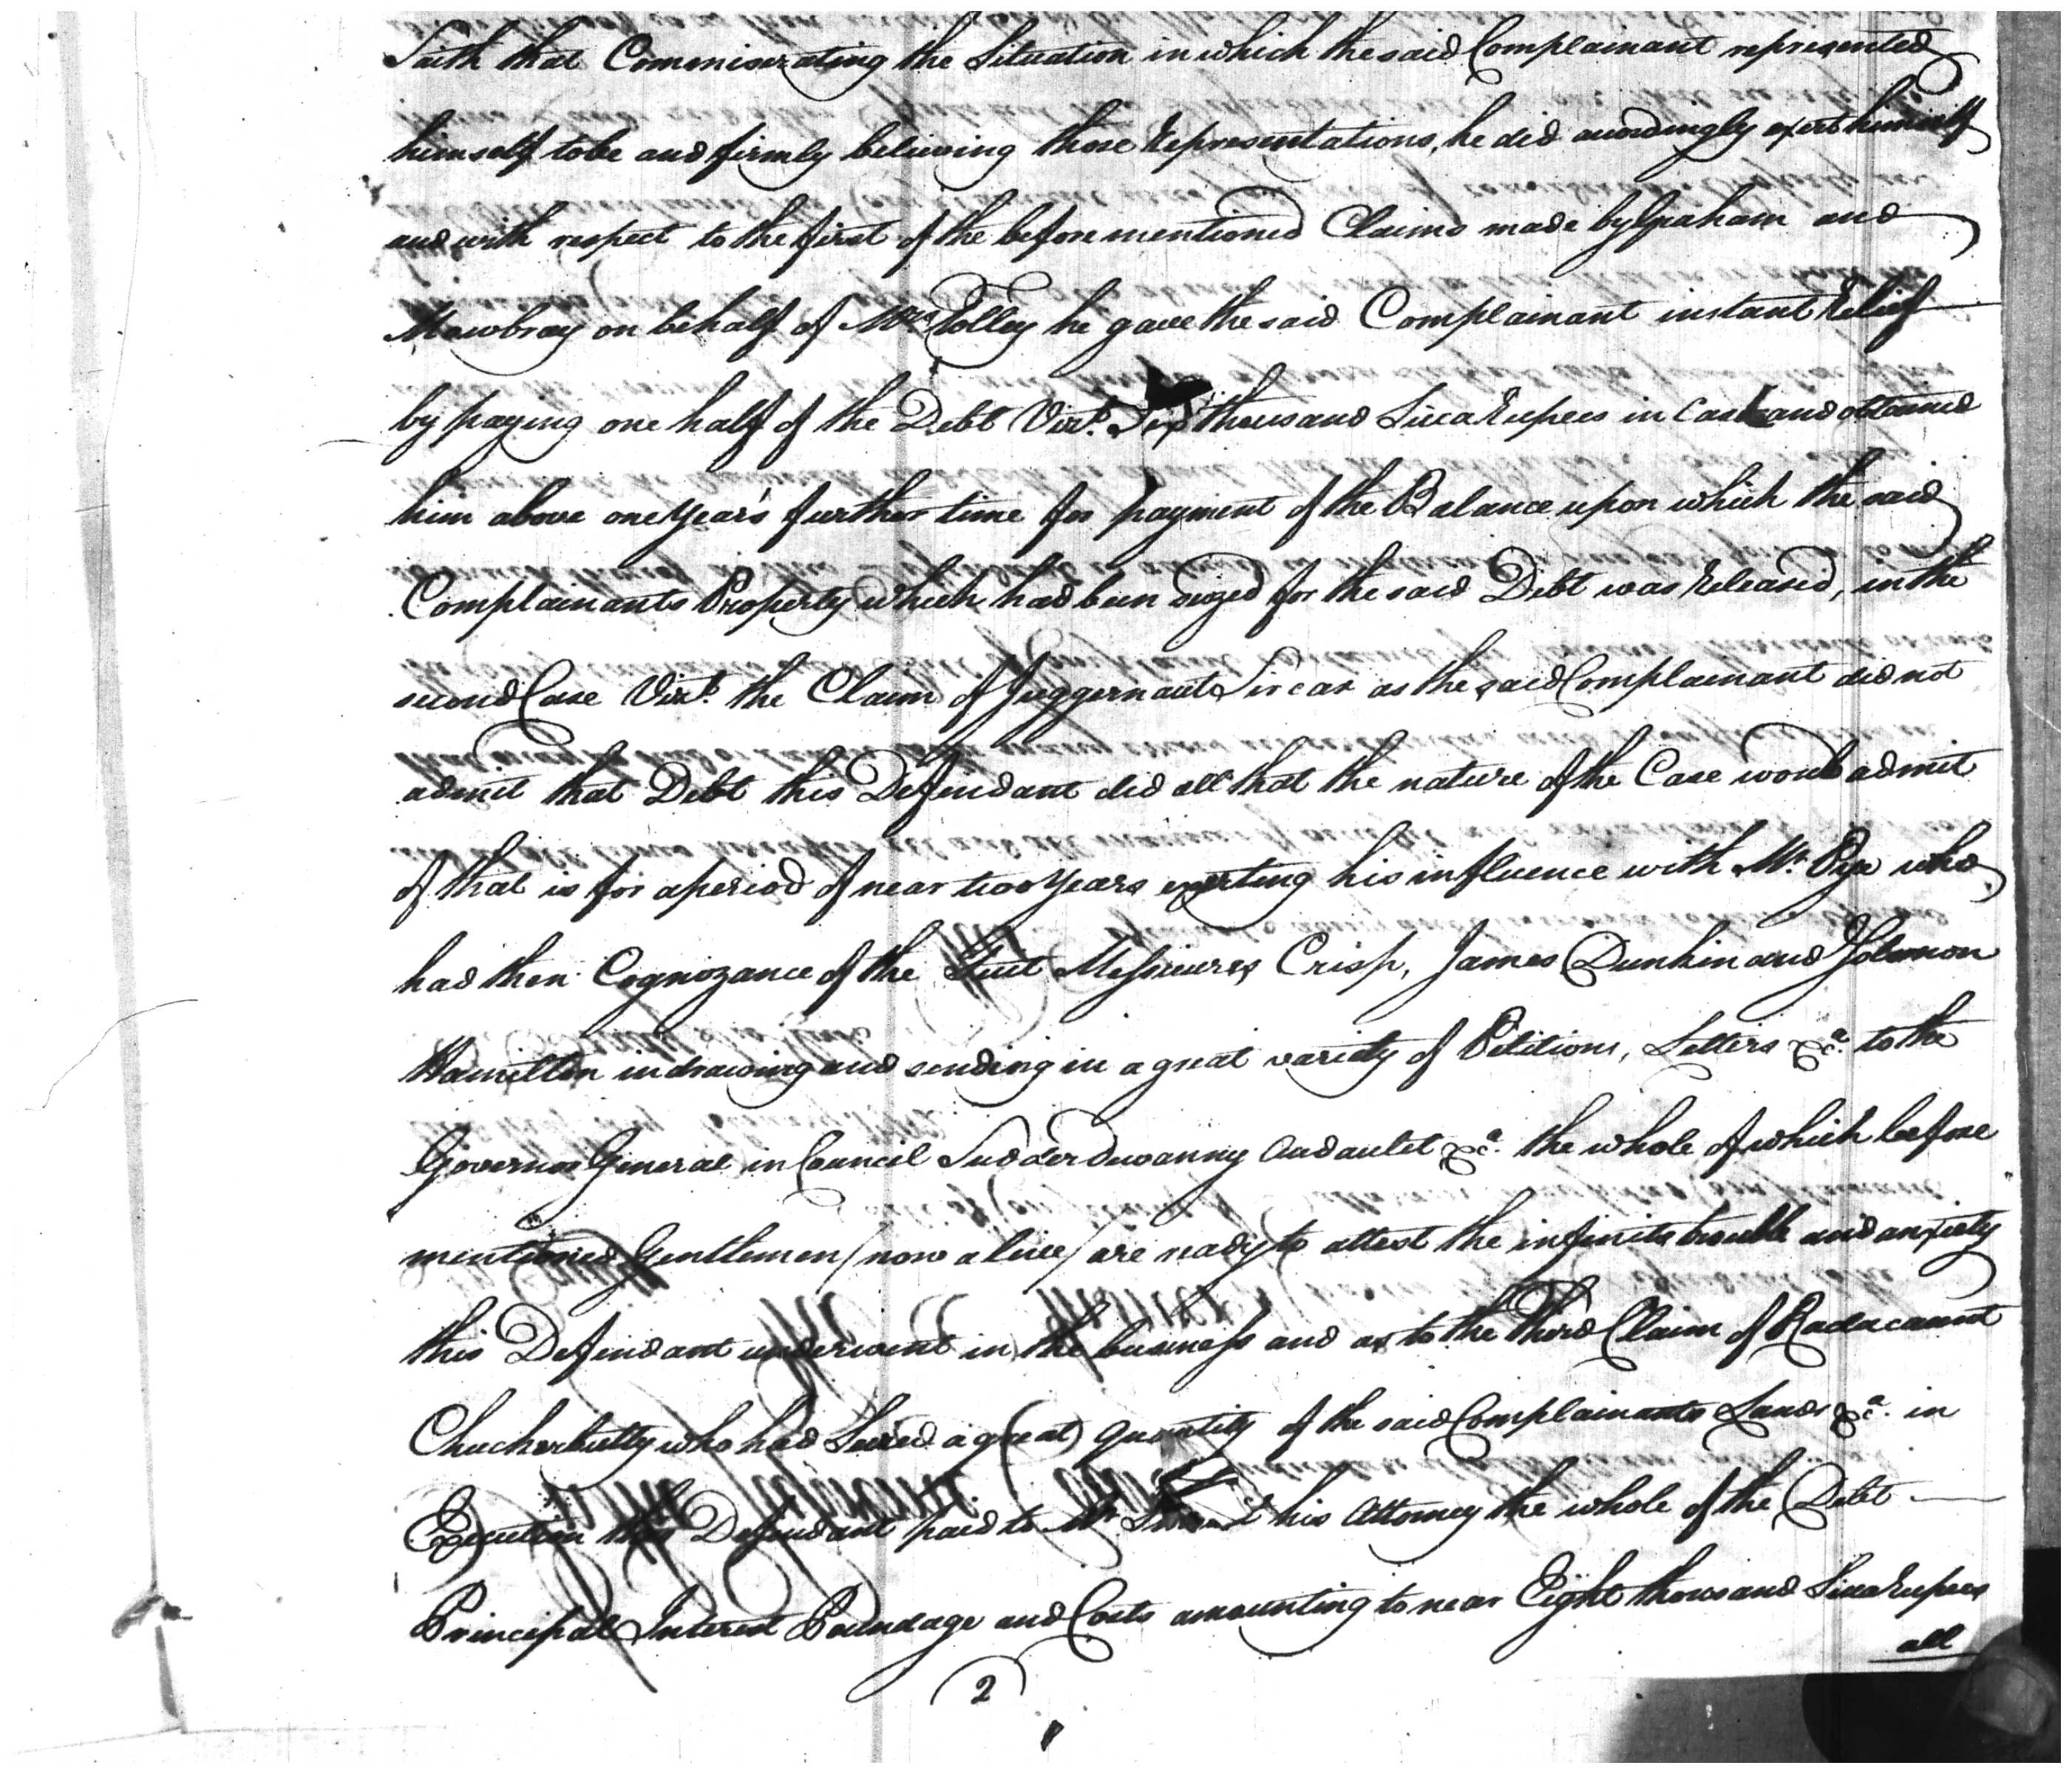 Saith that Commiserating the Situation in which the said Complainant represented
himself to be and firmly believing those Representations, he did accordingly exert himself
and with respect to the first of the before mentioned Claims made by Graham and
Mowbray on behalf of Mrs Tolley he gave the said Complainant instant Relief
by paying one half of the Debt Vizt. Six thousand Sicca Rupees in Cash and obtained
him above one Year's further time for payment of the Balance upon which the said
Complainants Property which had been seized for the said Debt was Released, in the
second Case Vizt. the Claim of Juggernaut Sircar as the said Complainant did not
admit that Debt this Defendant did all that the nature of the Case would admit
of that is for a period of near two Years exerting his influence with Mr. Pye who
had then Cognozance of the Suit Messieurs Crisp, James Dunkin and Solomon
Hamilton in drawing and sending in a great variety of Petitions, Letters &ca. to the
Governor General in Council Sudder Dewanny Audaulet &ca. the whole of which before
mentioned Gentlemen (now alive) are ready to attest the infinite trouble and anxiety
this Defendant underwent in the business and as to the Third Claim of Radacaunt
Chuckerbutty who had Seized a great quantity of the said Complainants Lands &ca. in
Execution this Defendant paid to Mr. his Attorney the whole of the Debt
Principal Interest Poundage and Costs amounting to near Eight thousand Sicca Rupees
all
2